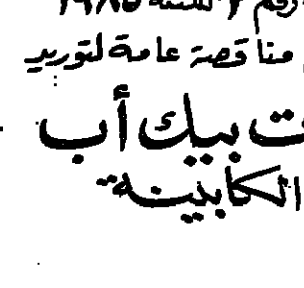 رقم ٢ للسنة ١٩٨٥
مناقصة عامة لتوريد
ت بيك أب
الكابينة